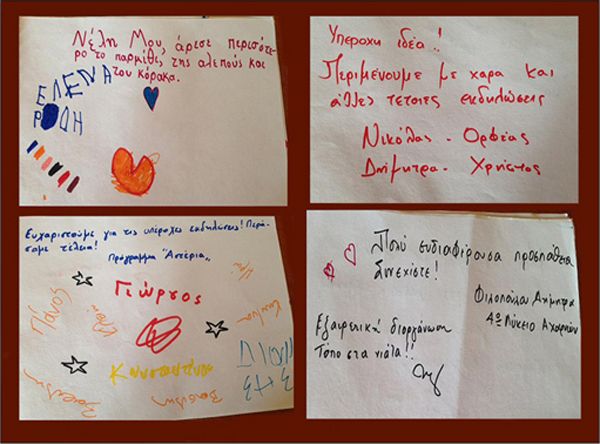 Νέλη Μου, άρεσε περισότε
ρο το παρμίθι της αλεπούς και
του κόρακα.
ΕΛΕΝΑ
ΡΟΔΗ
Υπέροχη ιδέα!!
Περιμένουμε με χαρα και
άλλες τέτοιες εκδηλώσεις
Νικόλας - Ορφέας
Δήμητρα - Χρήστος
Ευχαριστούμε για τις υπέροχες εκδηλώσεις! Περά-
σαμε τέλεια!
Πρόγραμμα "Αστέρια"
Γιώργος
Πάνος
Ελένη
Κωνσταντίνος
Βασιλης
Πολύ ενδιαφέρουσα προσπάθεια
Συνεχίστε!
Φιλοπούλου Δήμητρα
4ο Λύκειο Αχαρνών
Εξαιρετική διοργάνωση
Τόπο στα νιάτα!!